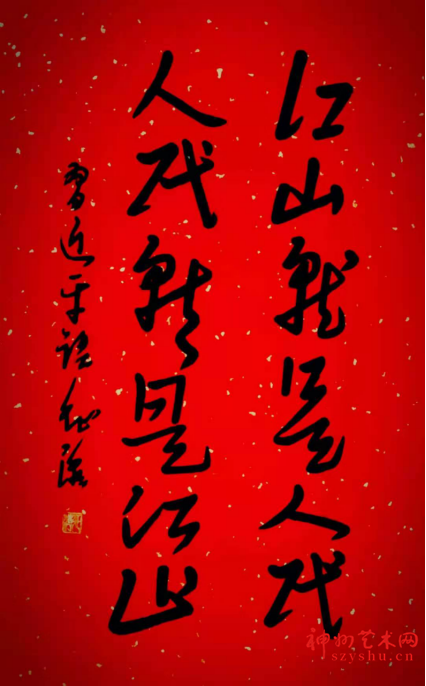 江山就是人民
人民就是江山
习近平语
神州艺术网
szyshu.cn